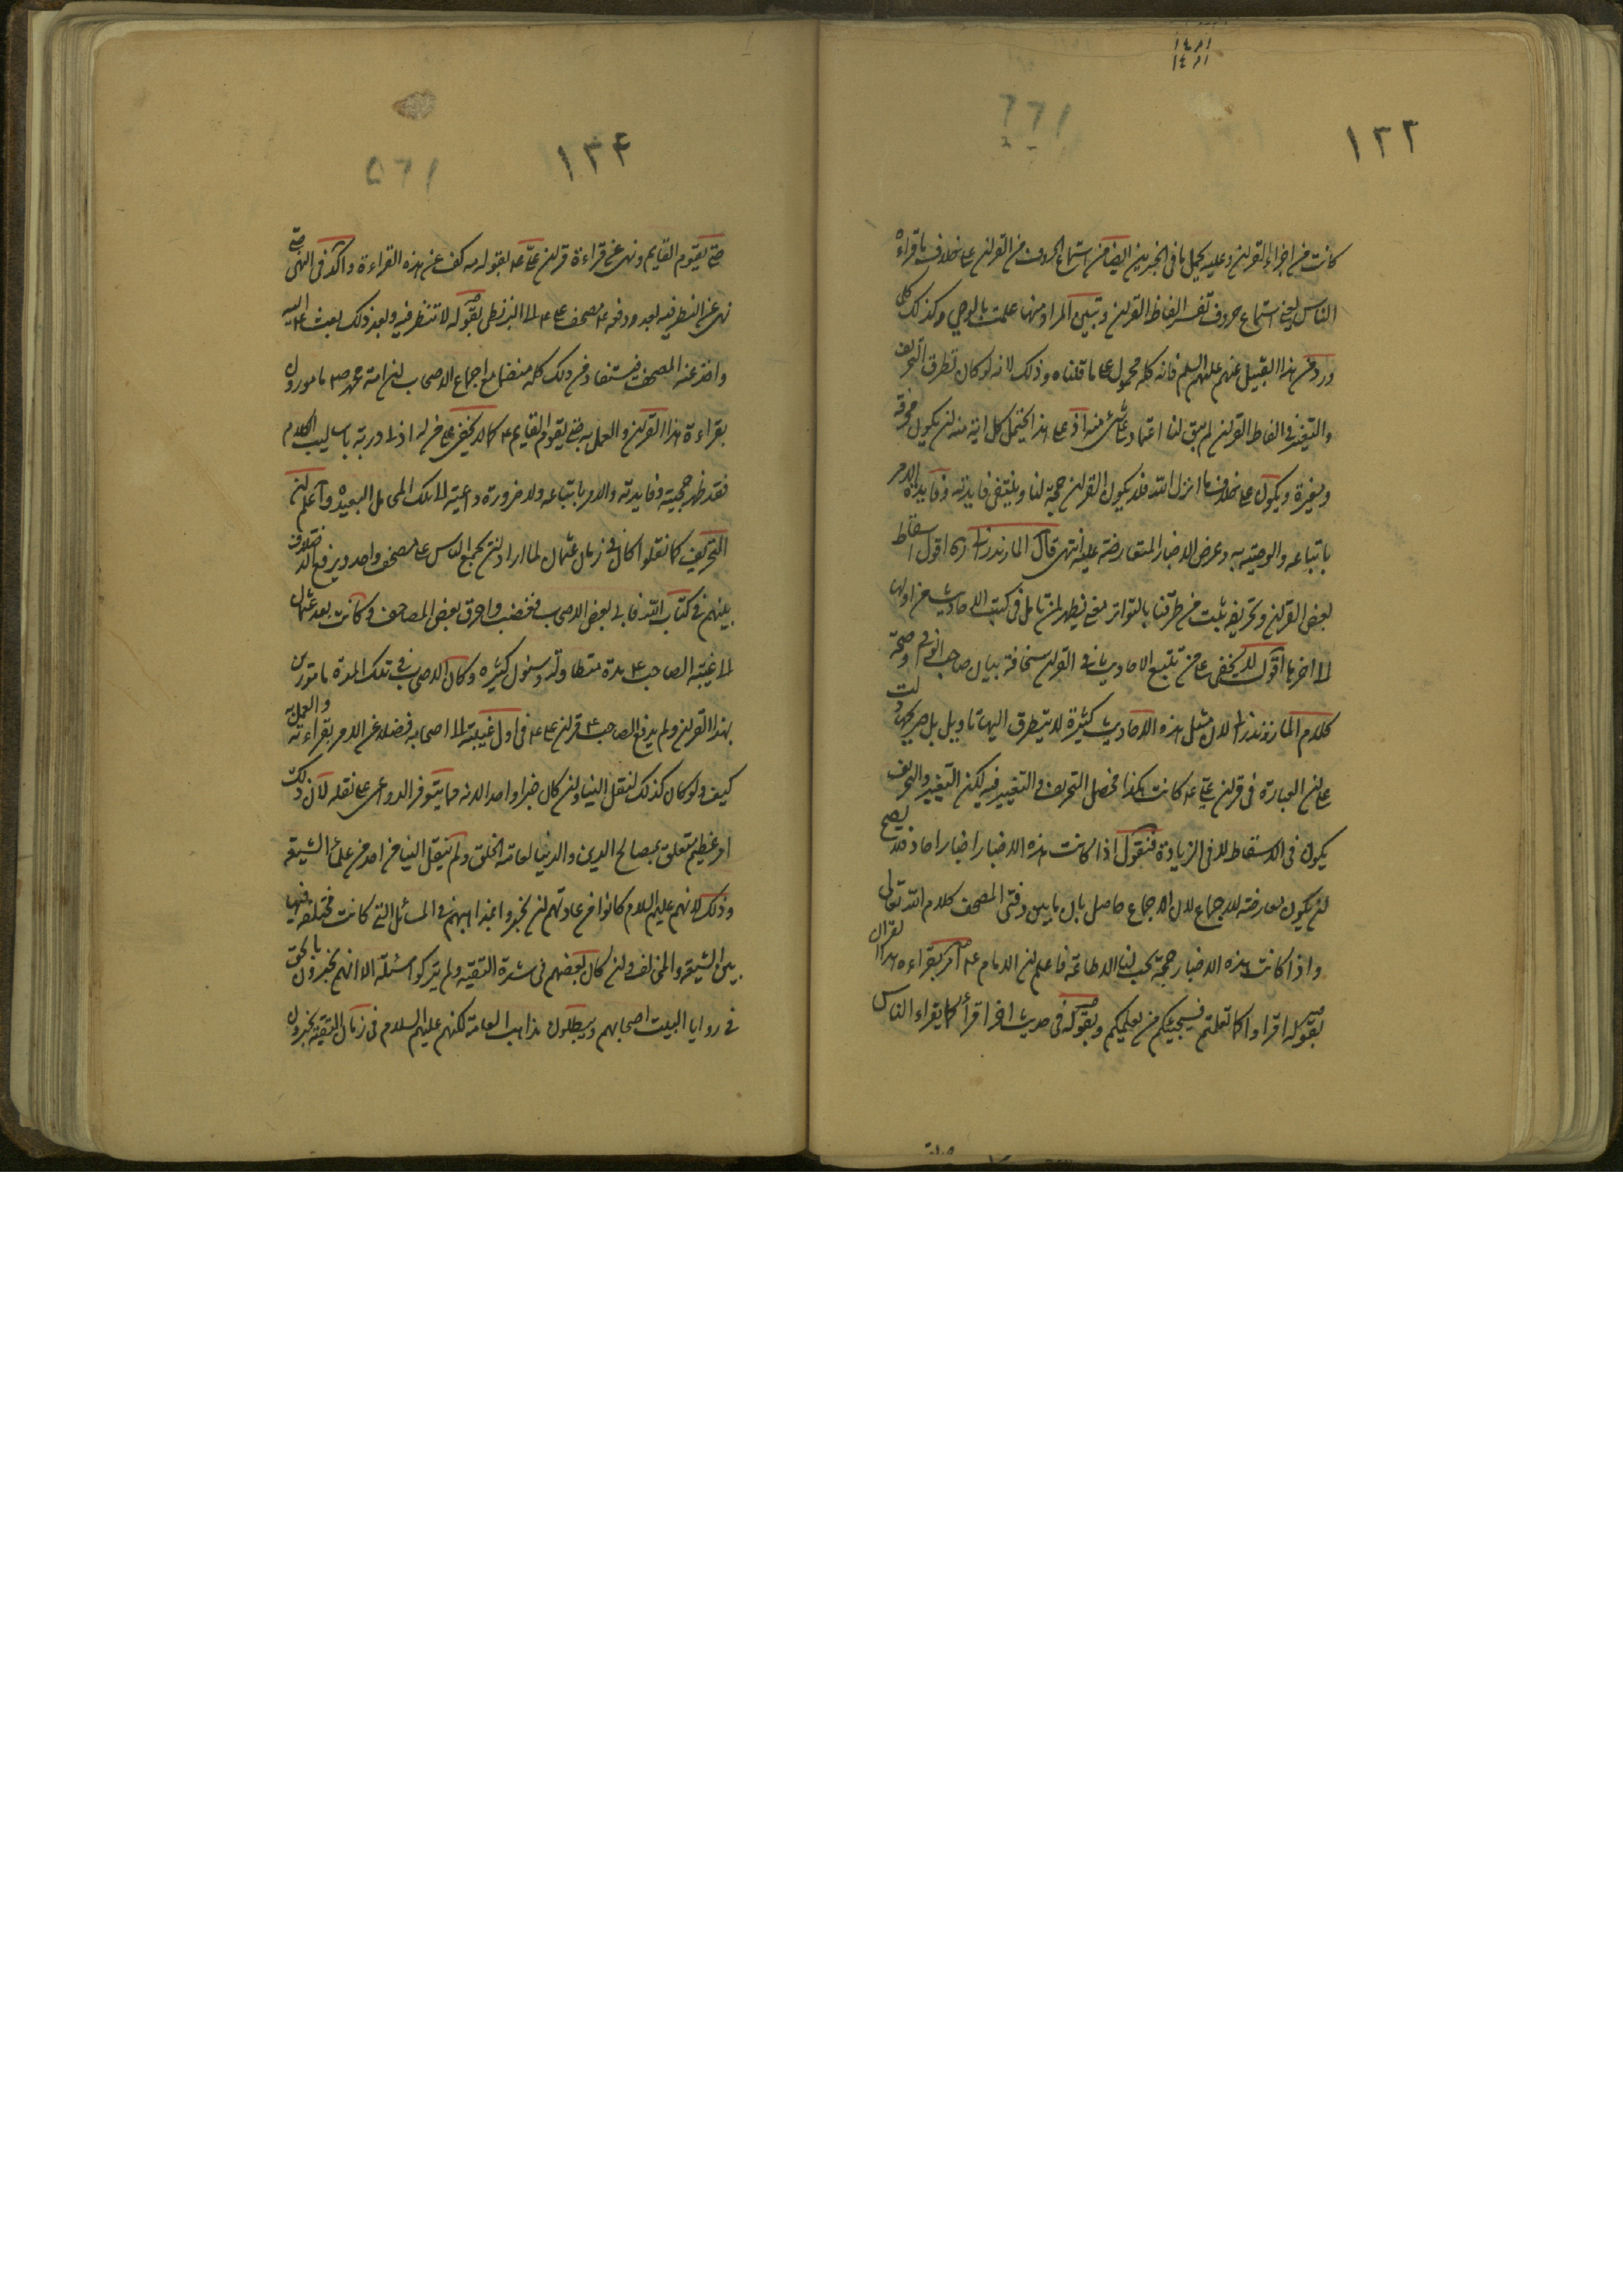 ١٣٢
كانت من اجزاء القران وعليه يحمل ما فى الخبرين ايضا من استماع الحروف من القران على خلاف ما قراه
الناس يعنى استماع حروف تفسر الفاظ القران وتبين المراد منها علمت بالوحى وكذلك كل
ورد من هذا القبيل عنهم عليهم السلم فانه كله محمول على ما قلناه وذلك لانه لو كان تطرق التحريف
والتغير فى الفاظ القران لم يبق لنا اعتماد على شئ منه اذ على هذا يحتمل كل اية منه ان يكون محرفة
ومغيرة ويكون على خلاف ما انزل الله فلا يكون القران حجة لنا وينتفى فايدته وفايدة الامر
باتباعه والوصية به وعرض الاخبار المتعارضة عليه انتهى قال المازندرانى اقول اسقاط
بعض القران وتحريفه ثبت من طرقنا بالتواتر معنى يظهر لمن تامل فى كتب الاحاديث من اولها
الى اخرها اقول لا يخفى على من تتبع الاحاديث فى القران سخافة بيان صاحب الوافى وصحة
كلام المازندرانى لان مثل هذه الاحاديث كثيرة لا يتطرق اليها تاويل بل صريحة دلت
على ان العبارة فى قران على ع كانت هكذا فحصل التحريف والتغيير فيه لكن التغيير والتحريف
يكون فى الاسقاط لا فى الزيادة فنقول اذا كانت هذه الاخبار اخبار احاد فلا يصح
ان يكون معارضة للاجماع لان الاجماع حاصل بان ما بين دفتى المصحف كلام الله تعالى
واذا كانت هذه الاخبار حجة يجب لنا الاطاعة فاعلم ان الامام ع امر بقراءه هذا القران
بقوله اقراوا كما تعلمتم فسيجيئكم من يعلمكم وبقوله فى حديث اخر اقرأ كما يقراء الناس
١٣٤
حتى يقوم القايم ونهى عن قراءة قران على ع بقوله مه كف عن هذه القراءة واكد فى النهى حتى
نهى عن النظر فيه بعد ودفع ع مصحف على ع الى البزنطى بقوله لا تنظر فيه وبعد ذلك بعث ع اليه
واخذ عنه المصحف فيستفاد من ذلك كله منضما مع اجماع الاصحاب ان امة محمد ص مامورون
بقراءة هذا القران والعمل به حتى يقوم القايم ع كما لا يخفى على من له ادنى دربة باساليب الكلام
فقد ظهر حجيته وفايدته والامر باتباعه ولا ضرورة داعية الى تلك المحامل البعيدة واعلم ان
التحريف كما نقلوا كان فى زمان عثمان لما اراد ان يجمع الناس على مصحف واحد ويرفع الاختلاف
بينهم فى كتاب الله فابى بعض الاصحاب فغضب واحرق بعض المصاحف وكانت بعد عثمان
الى غيبة الصاحب ع مدة متطاولة وسنون كثيره وكان الاصحاب فى تلك المدة مامورين
بهذا القران ولم يدفع الصاحب ع قران على ع فى اول غيبته الى اصحابه فضلا عن الامر بقراءته والعمل به
كيف ولو كان كذلك لنقل الينا وان كان خبرا واحدا لانه مما يتوفر الدواعى على نقله لان ذلك
امر عظيم متعلق بمصالح الدين والدنيا لعامة الخلق ولم ينقل الينا من احد من علماء الشيعة
وذلك لانهم عليهم السلام كانوا من عادتهم ان يخبروا بمذاهبهم فى المسائل التى كانت مختلفة فيها
بين الشيعة والمخالف وان كان بعضهم فى شدة التقيه ولم يتركوا مسئلة الا انهم يخبرون بالحق
فى زوايا البيت اصحابهم ويبطلون مذاهب العامة لكنهم عليهم السلام فى زمان التقية يخبرون